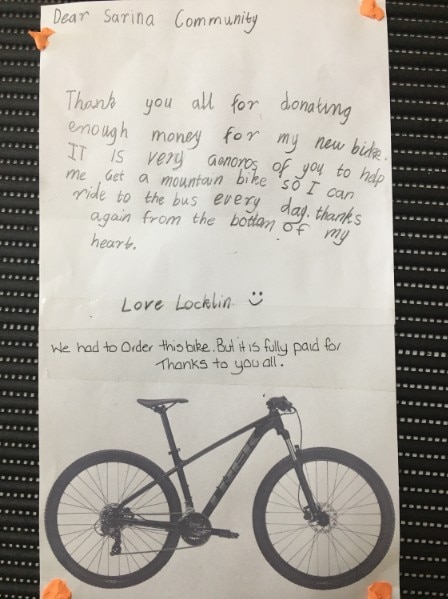 Dear Sarina Community
Thank you all for donating
enough money for my new bicke.
IT is very Gonoros of you to help
me Get a mountain bike so I can
ride to the bus every day. thanks
again from the bottan of my
heart.
Love Locklin
We had to Order this bike. But it is fully paid for
Thanks to you all.
TREK